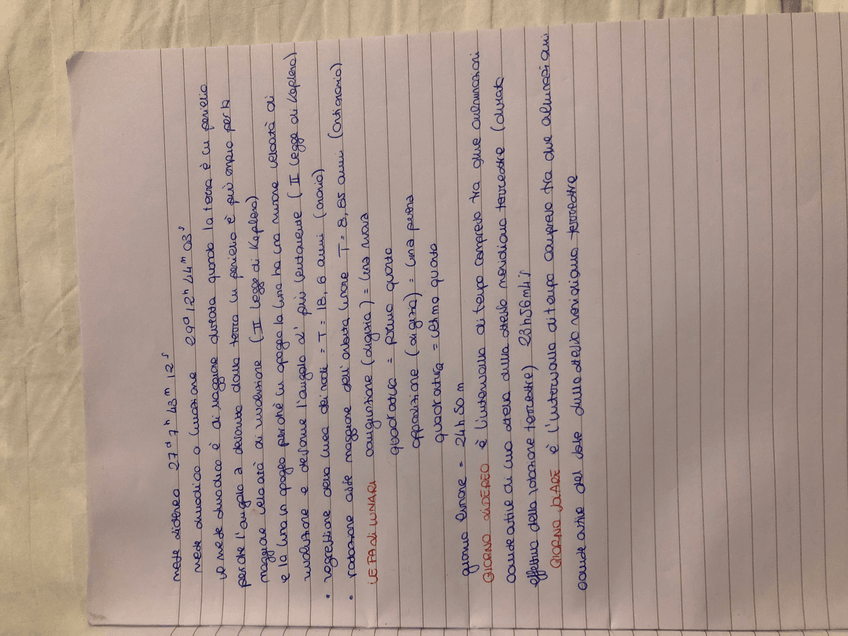 mese sidereo 27ᵈ 7ʰ 43ᵐ 12ˢ
mese sinodico o lunazione 29ᵈ 12ʰ 44ᵐ 03ˢ
il mese sinodico è di maggiore durata quando la terra è in perielio
perché l'angolo α descritto dalla terra in perielio è più ampio per la
maggiore velocità di rivoluzione (II legge di Keplero)
e la luna in apogeo perché in apogeo la luna ha una minore velocità di
rivoluzione e descrive l'angolo α' più lentamente (II legge di Keplero)
• regressione della linea dei nodi = T = 18,6 anni (orario)
• rotazione asse maggiore dell'orbita lunare T = 8,85 anni (antiorario)
LE FASI LUNARI congiunzione (sigizia) = luna nuova
quadratura = primo quarto
opposizione (sigizia) = luna piena
quadratura = ultimo quarto
giorno lunare = 24h 50m
GIORNO SIDEREO è l'intervallo di tempo compreso tra due culminazioni
consecutive di una stessa stella sullo stesso meridiano terrestre (durata
effettiva della rotazione terrestre) 23h56m4s
GIORNO SOLARE è l'intervallo di tempo compreso tra due culminazioni
consecutive del sole sullo stesso meridiano terrestre